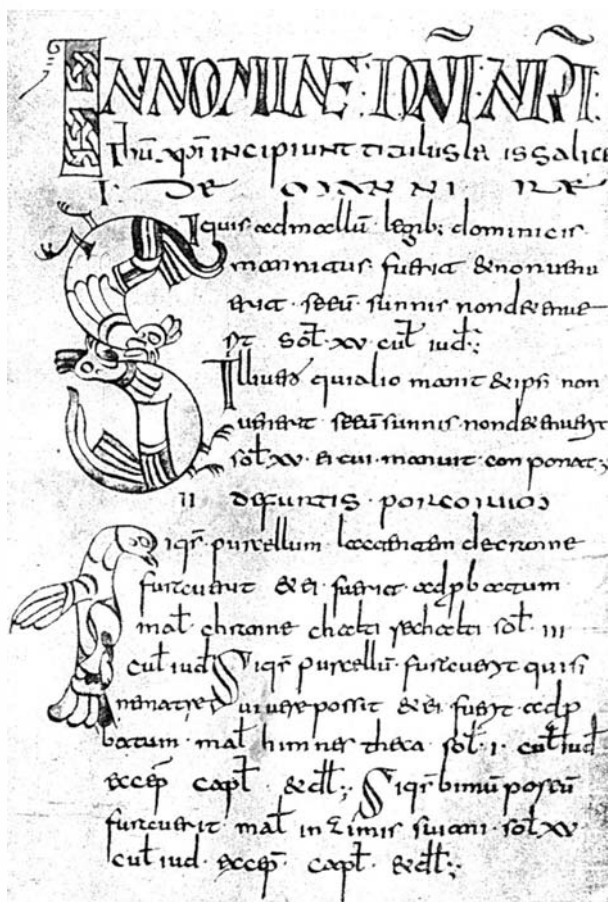 IN NOMINE · DN̄I · NR̄I ·
Ihū · xp̄i incipiunt titulus legis salice
I · De manni re
Siquis ad mallū · legib; dominicis
mannitus · fuerit & non uenu
erit · seeū · sunnis non detenue
rit sol̄ · xv · cul̄ iud̄ ·;
Illiuero qui alio manit & ipsi non
uenerit seeū sunnis · non detenueryt
sol̄ · xv · ei cui · manuit · conponat ·;
II defurtis · porcoruo
Siqr̄ · purcellum · lactantem decranne
furauerit & ei · fuerit · adp batum
mal̄ · chranne chalti rechalti sol̄ · III
cul̄ iud̄ Siqr̄ purcellū · furauerit qui si
nematre uiuere possit & ei · fueryt · adp
batum · mal̄ · himnes theca · sol̄ · I · cul̄ iud̄
excep̄ capl̄ & dl̄ ·; Siqr̄ bimū porcū
furauerit · mal̄ in zimis suiani · sol̄ xv
cul̄ iud̄ · excep̄ · capl̄ · & dl̄ ·;